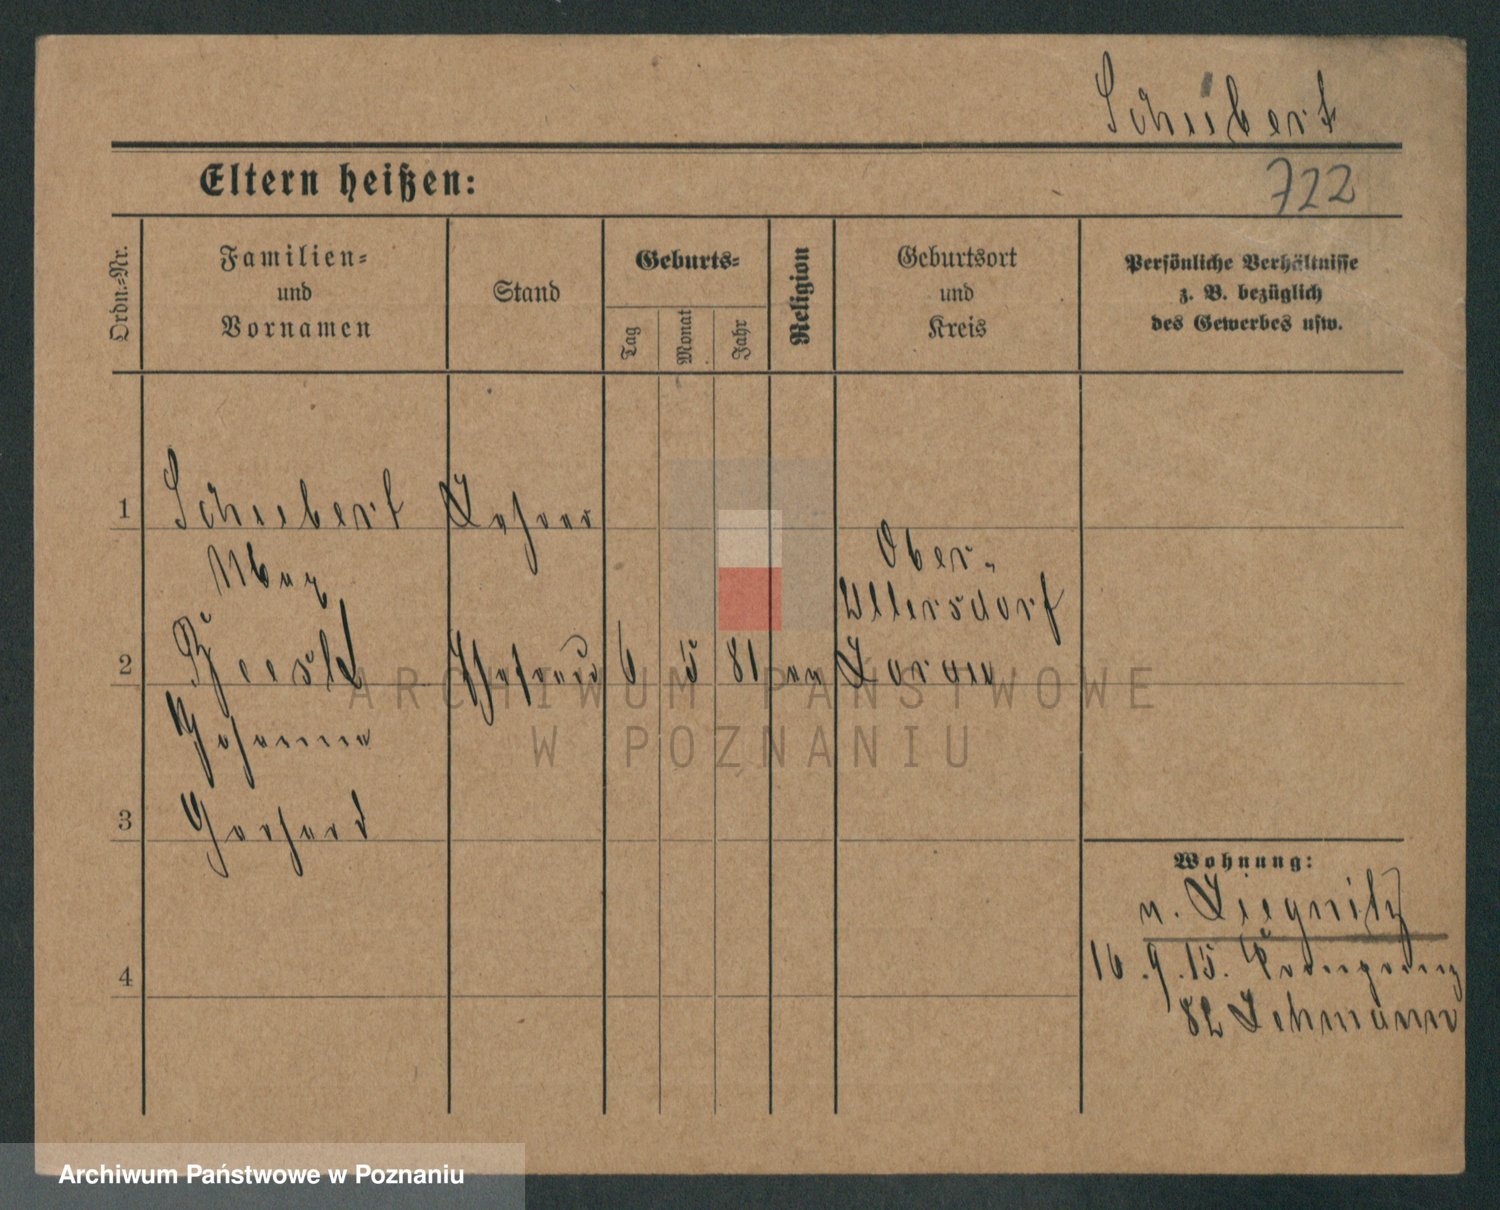 Schubert
Eltern heißen:
722
Ordn.-Nr.
Familien-
und
Vornamen
Stand
Geburts-
Tag
Monat
Jahr
Religion
Geburtsort
und
Kreis
Persönliche Verhältnisse
z. B. bezüglich
des Gewerbes usw.
1
Schubert
Max
2
Ehefrau
6
5
81
Ober-
Ullersdorf
Sorau
Johanna
3
Gerhard
4
Wohnung:
n. Liegnitz
16.9.15. Kronprinz
82 Lehmann
ARCHIWUM PAŃSTWOWE
W POZNANIU
Archiwum Państwowe w Poznaniu